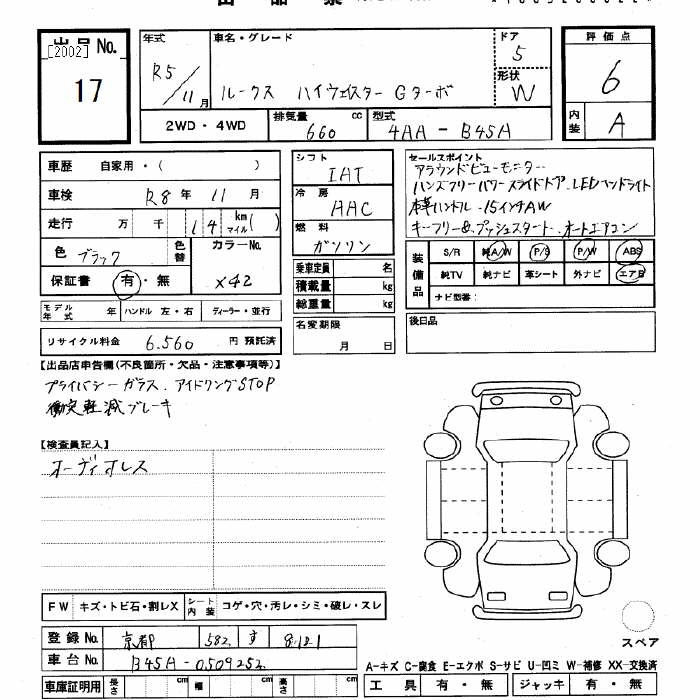 出品 No.
[2002]
17
年式
R5/11月
車名・グレード
ルークス ハイウェイスター Gターボ
ドア
5
形状
W
2WD・4WD
排気量
660 cc
型式
4AA-B45A
評価点
6
内装
A
車歴 自家用・( )
車検 R8年 11月
走行 万 千 14 km マイル( )
色 ブラック 色替
カラーNo.
X42
保証書 有・無
モデル年式 年 ハンドル 左・右 ディーラー・並行
リサイクル料金 6,560 円 預託済
シフト
IAT
冷房
AAC
燃料
ガソリン
乗車定員 名
積載量 kg
総重量 kg
名変期限
月 日
セールスポイント
アラウンドビューモニター
ハンズフリーパワースライドドア. LEDヘッドライト
本革ハンドル. 15インチAW
キーフリー&プッシュスタート. オートエアコン
装備品
S/R 純A/W P/S P/W ABS
純TV 純ナビ 革シート 外ナビ エアB
ナビ型番:
後日品
【出品店申告欄(不良箇所・欠品・注意事項等)】
プライバシーガラス. アイドリングSTOP
衝突軽減ブレーキ
【検査員記入】
オーディオレス
FW キズ・トビ石・割レX シート内装 コゲ・穴・汚レ・シミ・破レ・スレ
登録No. 京都 582 す 8181
車台No. B45A-0509252
車庫証明用 長さ cm 幅 cm 高さ cm
スペア
A-キズ C-腐食 E-エクボ S-サビ U-凹ミ W-補修 XX-交換済
工具 有・無 ジャッキ 有・無